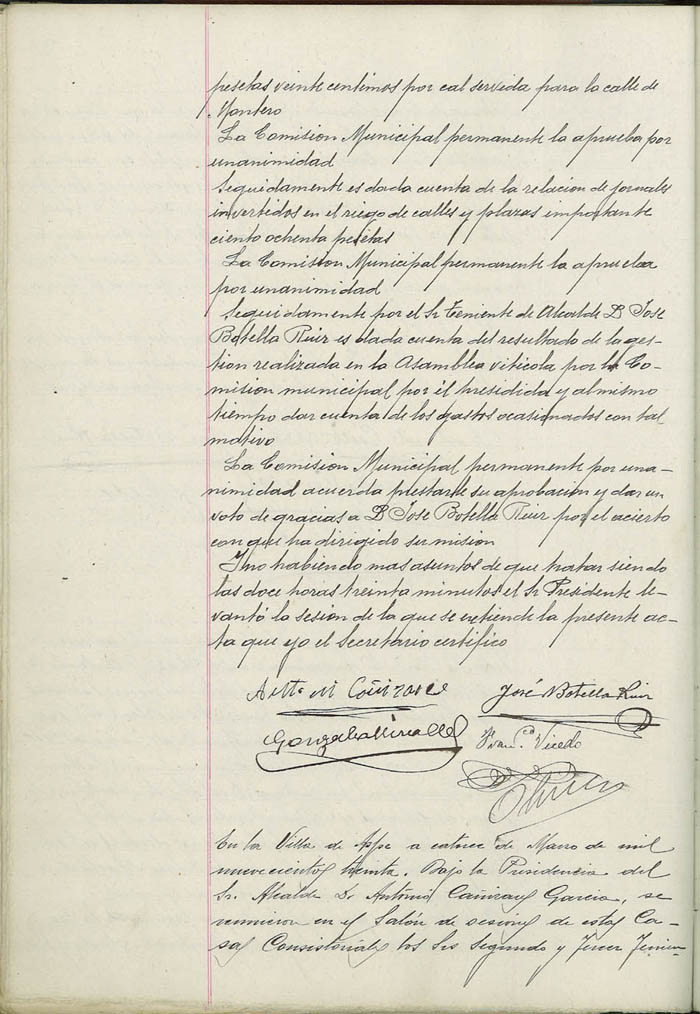 pesetas veinte centimos por cal servida para la calle de
Montero
La Comision Municipal permanente la aprueba por
unanimidad
Seguidamente es dada cuenta de la relacion de jornales
invertidos en el riego de calles y plazas importante
ciento ochenta pesetas
La Comision Municipal permanente la aprueba
por unanimidad
Seguidamente por el Sr Teniente de Alcalde D Jose
Botella Ruiz es dada cuenta del resultado de la ges-
tion realizada en la Asamblea vitícola por la Co-
mision municipal por él presidida y al mismo
tiempo dar cuenta de los gastos ocasionados con tal
motivo
La Comision Municipal permanente por una-
nimidad acuerda prestarle su aprobacion y dar un
voto de gracias a D Jose Botella Ruiz por el acierto
con que ha dirigido su mision
Y no habiendo mas asuntos de que tratar siendo
las doce horas treinta minutos el Sr Presidente le-
vantó la sesion de la que se extiende la presente ac-
ta que yo el Secretario certifico
Cañizares José Botella Ruiz
Gonzalo Miralles Fran.co Vicedo
En la Villa de Aspe a catorce de Marzo de mil
nuevecientos treinta. Bajo la Presidencia del
Sr. Alcalde D. Antonio Cañizares Garcia, se
reunieron en el Salón de sesiones de estas Ca-
sas Consistoriales los Srs Segundo y Tercer Tenien-